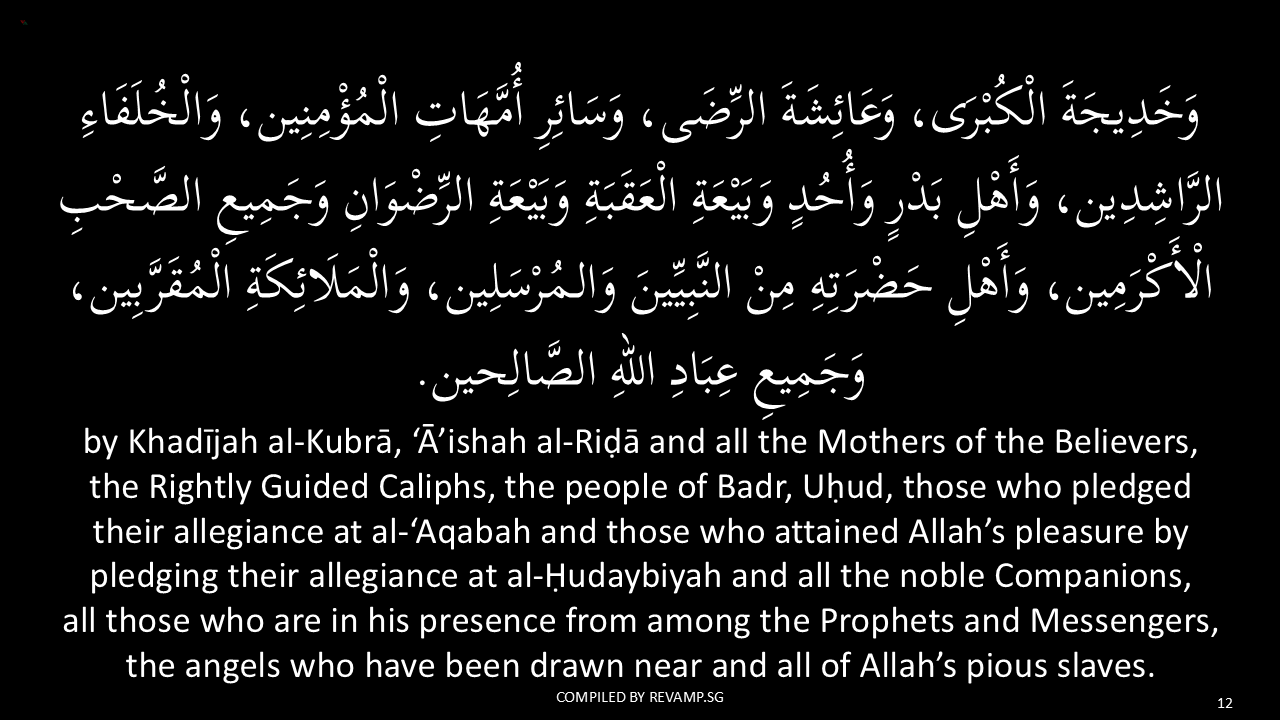 وَخَدِيجَةَ الْكُبْرَى، وَعَائِشَةَ الرِّضَى، وَسَائِرِ أُمَّهَاتِ الْمُؤْمِنِين، وَالْخُلَفَاءِ
الرَّاشِدِين، وَأَهْلِ بَدْرٍ وَأُحُدٍ وَبَيْعَةِ الْعَقَبَةِ وَبَيْعَةِ الرِّضْوَانِ وَجَمِيعِ الصَّحْبِ
الْأَكْرَمِين، وَأَهْلِ حَضْرَتِهِ مِنْ النَّبِيِّينَ وَالمُرْسَلِين، وَالْمَلَائِكَةِ الْمُقَرَّبِين،
وَجَمِيعِ عِبَادِ اللهِ الصَّالِحين.
by Khadījah al-Kubrā, ‘Ā’ishah al-Riḍā and all the Mothers of the Believers,
the Rightly Guided Caliphs, the people of Badr, Uḥud, those who pledged
their allegiance at al-‘Aqabah and those who attained Allah’s pleasure by
pledging their allegiance at al-Ḥudaybiyah and all the noble Companions,
all those who are in his presence from among the Prophets and Messengers,
the angels who have been drawn near and all of Allah’s pious slaves.
COMPILED BY REVAMP.SG
12